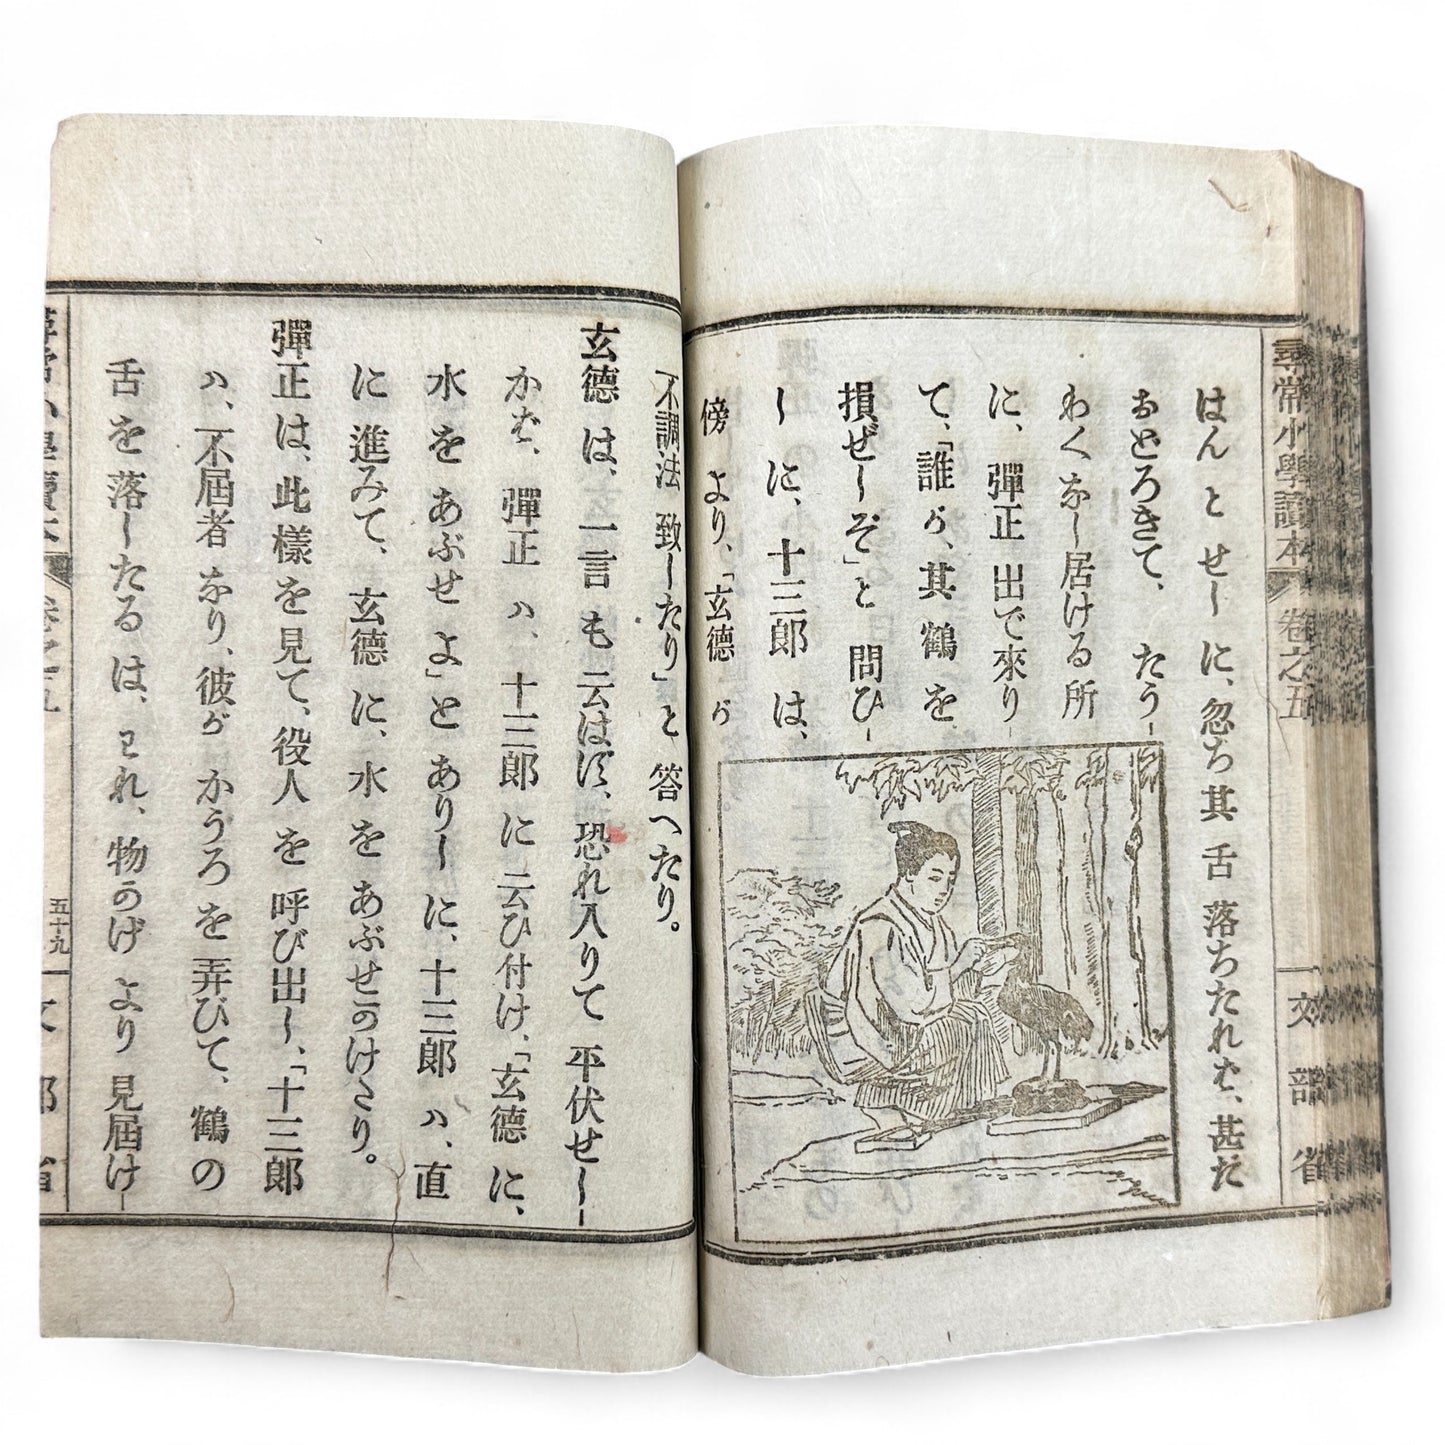 尋常小學讀本 卷之五 文部省
はんとせしに、忽ち其舌落ちたれば、甚だ
おどろきて、たう
わくなし居ける所
に、彈正出で來り
て、「誰が、其鶴を
損ぜしぞ」と問ひ
しに、十三郎は、
傍より、「玄德が
不調法致したり」と答へたり。
玄德は、一言も云はず、恐れ入りて平伏せし
かば、彈正ハ、十三郎に云ひ付け、「玄德に、
水をあぶせよ」とありしに、十三郎ハ、直
に進みて、玄德に、水をあぶせかけたり。
彈正は、此樣を見て、役人を呼び出し、「十三郎
ハ、不屆者なり、彼がかうろを弄びて、鶴の
舌を落したるは、われ、物かげより見屆け
五十九